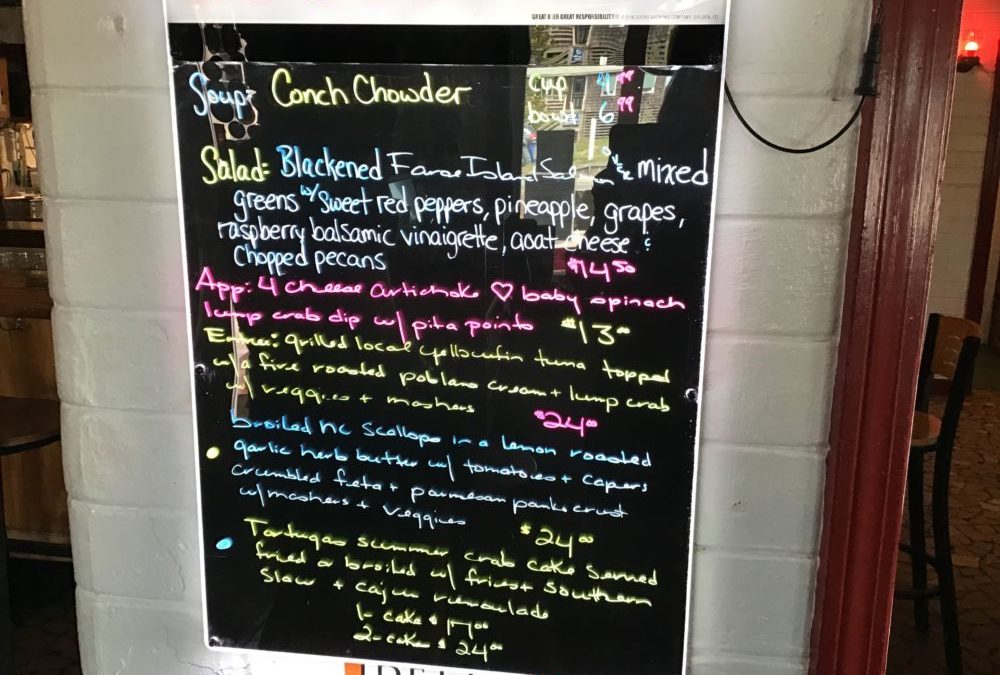 GREAT BEER GREAT RESPONSIBILITY
COORS BREWING COMPANY, GOLDEN, CO
Soup: Conch Chowder
Cup 4 99
bowl 6 99
Salad: Blackened Faroe Island Salmon over mixed
greens w/ sweet red peppers, pineapple, grapes,
raspberry balsamic vinaigrette, goat cheese &
Chopped pecans $14 50
App: 4 cheese artichoke ♡ baby spinach
lump crab dip w/ pita points $13 00
Entree: grilled local yellowfin tuna topped
w/ a fire roasted poblano cream + lump crab
w/ veggies + mashers $24 00
broiled nc scallops in a lemon roasted
garlic herb butter w/ tomatoes + capers
crumbled feta + parmesan panko crust
w/ mashers + veggies $24 00
Tortugas summer crab cake served
fried or broiled w/ fries + Southern
Slaw + cajun remoulade
1- cake $17 00
2- cakes $24 00